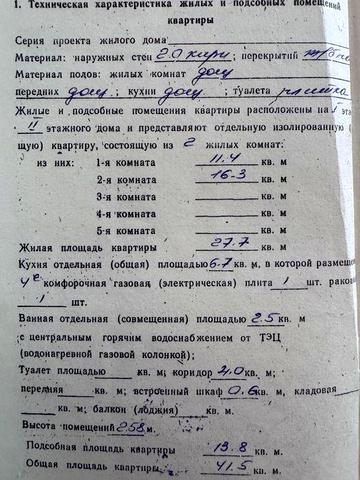 1. Техническая характеристика жилых и подсобных помещений
квартиры
Серия проекта жилого дома
Материал: наружных стен кирп; перекрытий
Материал полов: жилых комнат дощ
передних дощ; кухни дощ; туалета плитка
Жилые и подсобные помещения квартиры расположены на I эта
II этажного дома и представляют отдельную изолированную (
щую) квартиру, состоящую из 2 жилых комнат:
из них: 1-я комната 11.4 кв. м
2-я комната 16.3 кв. м
3-я комната кв. м
4-я комната кв. м
5-я комната кв. м
Жилая площадь квартиры 27.7 кв. м
Кухня отдельная (общая) площадью 6.7 кв. м, в которой размещ
4х комфорочная газовая, (электрическая) плита 1 шт. рако
1 шт.
Ванная отдельная (совмещенная) площадью 2.5 кв. м
с центральным горячим водоснабжением от ТЭЦ
(водонагревной газовой колонкой);
Туалет площадью кв. м; коридор 4.0 кв. м;
передняя кв. м; встроенный шкаф 0.6 кв. м, кладовая
кв. м; балкон (лоджия) кв. м.
Высота помещений 2.58 м.
Подсобная площадь квартиры 13.8 кв. м
Общая площадь квартиры 41.5 кв. м